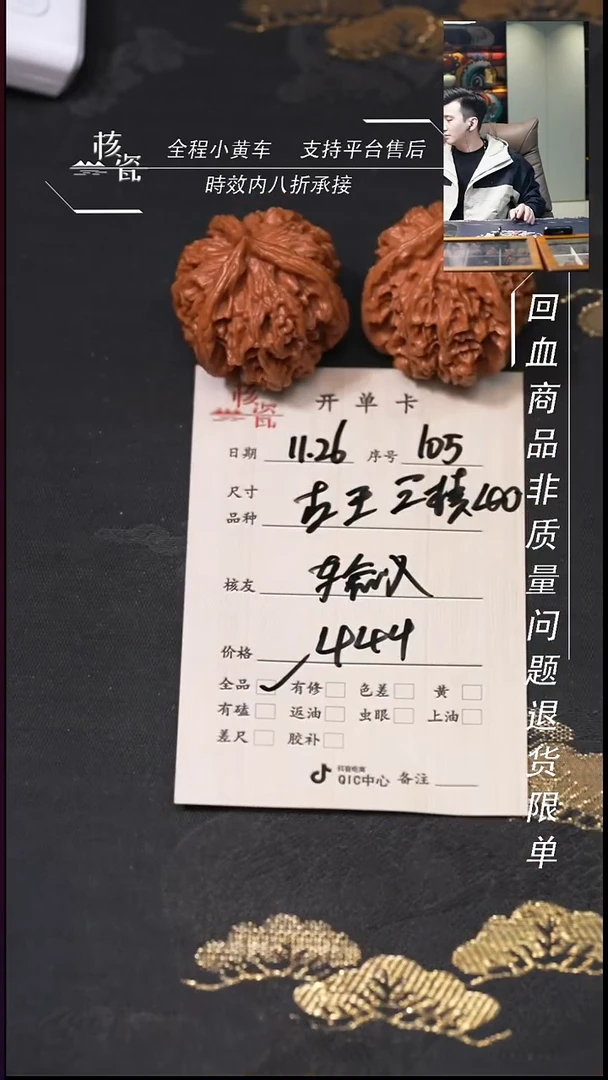 核瓷
全程小黄车 支持平台售后
時效内八折承接
回血商品非质量问题退货限单
核瓷
开单卡
日期 11.26 序号 105
尺寸
品种
核友
价格 444
全品 有修 色差 黄
有磕 返油 虫眼 上油
差尺 胶补
抖音电商
QIC中心 备注